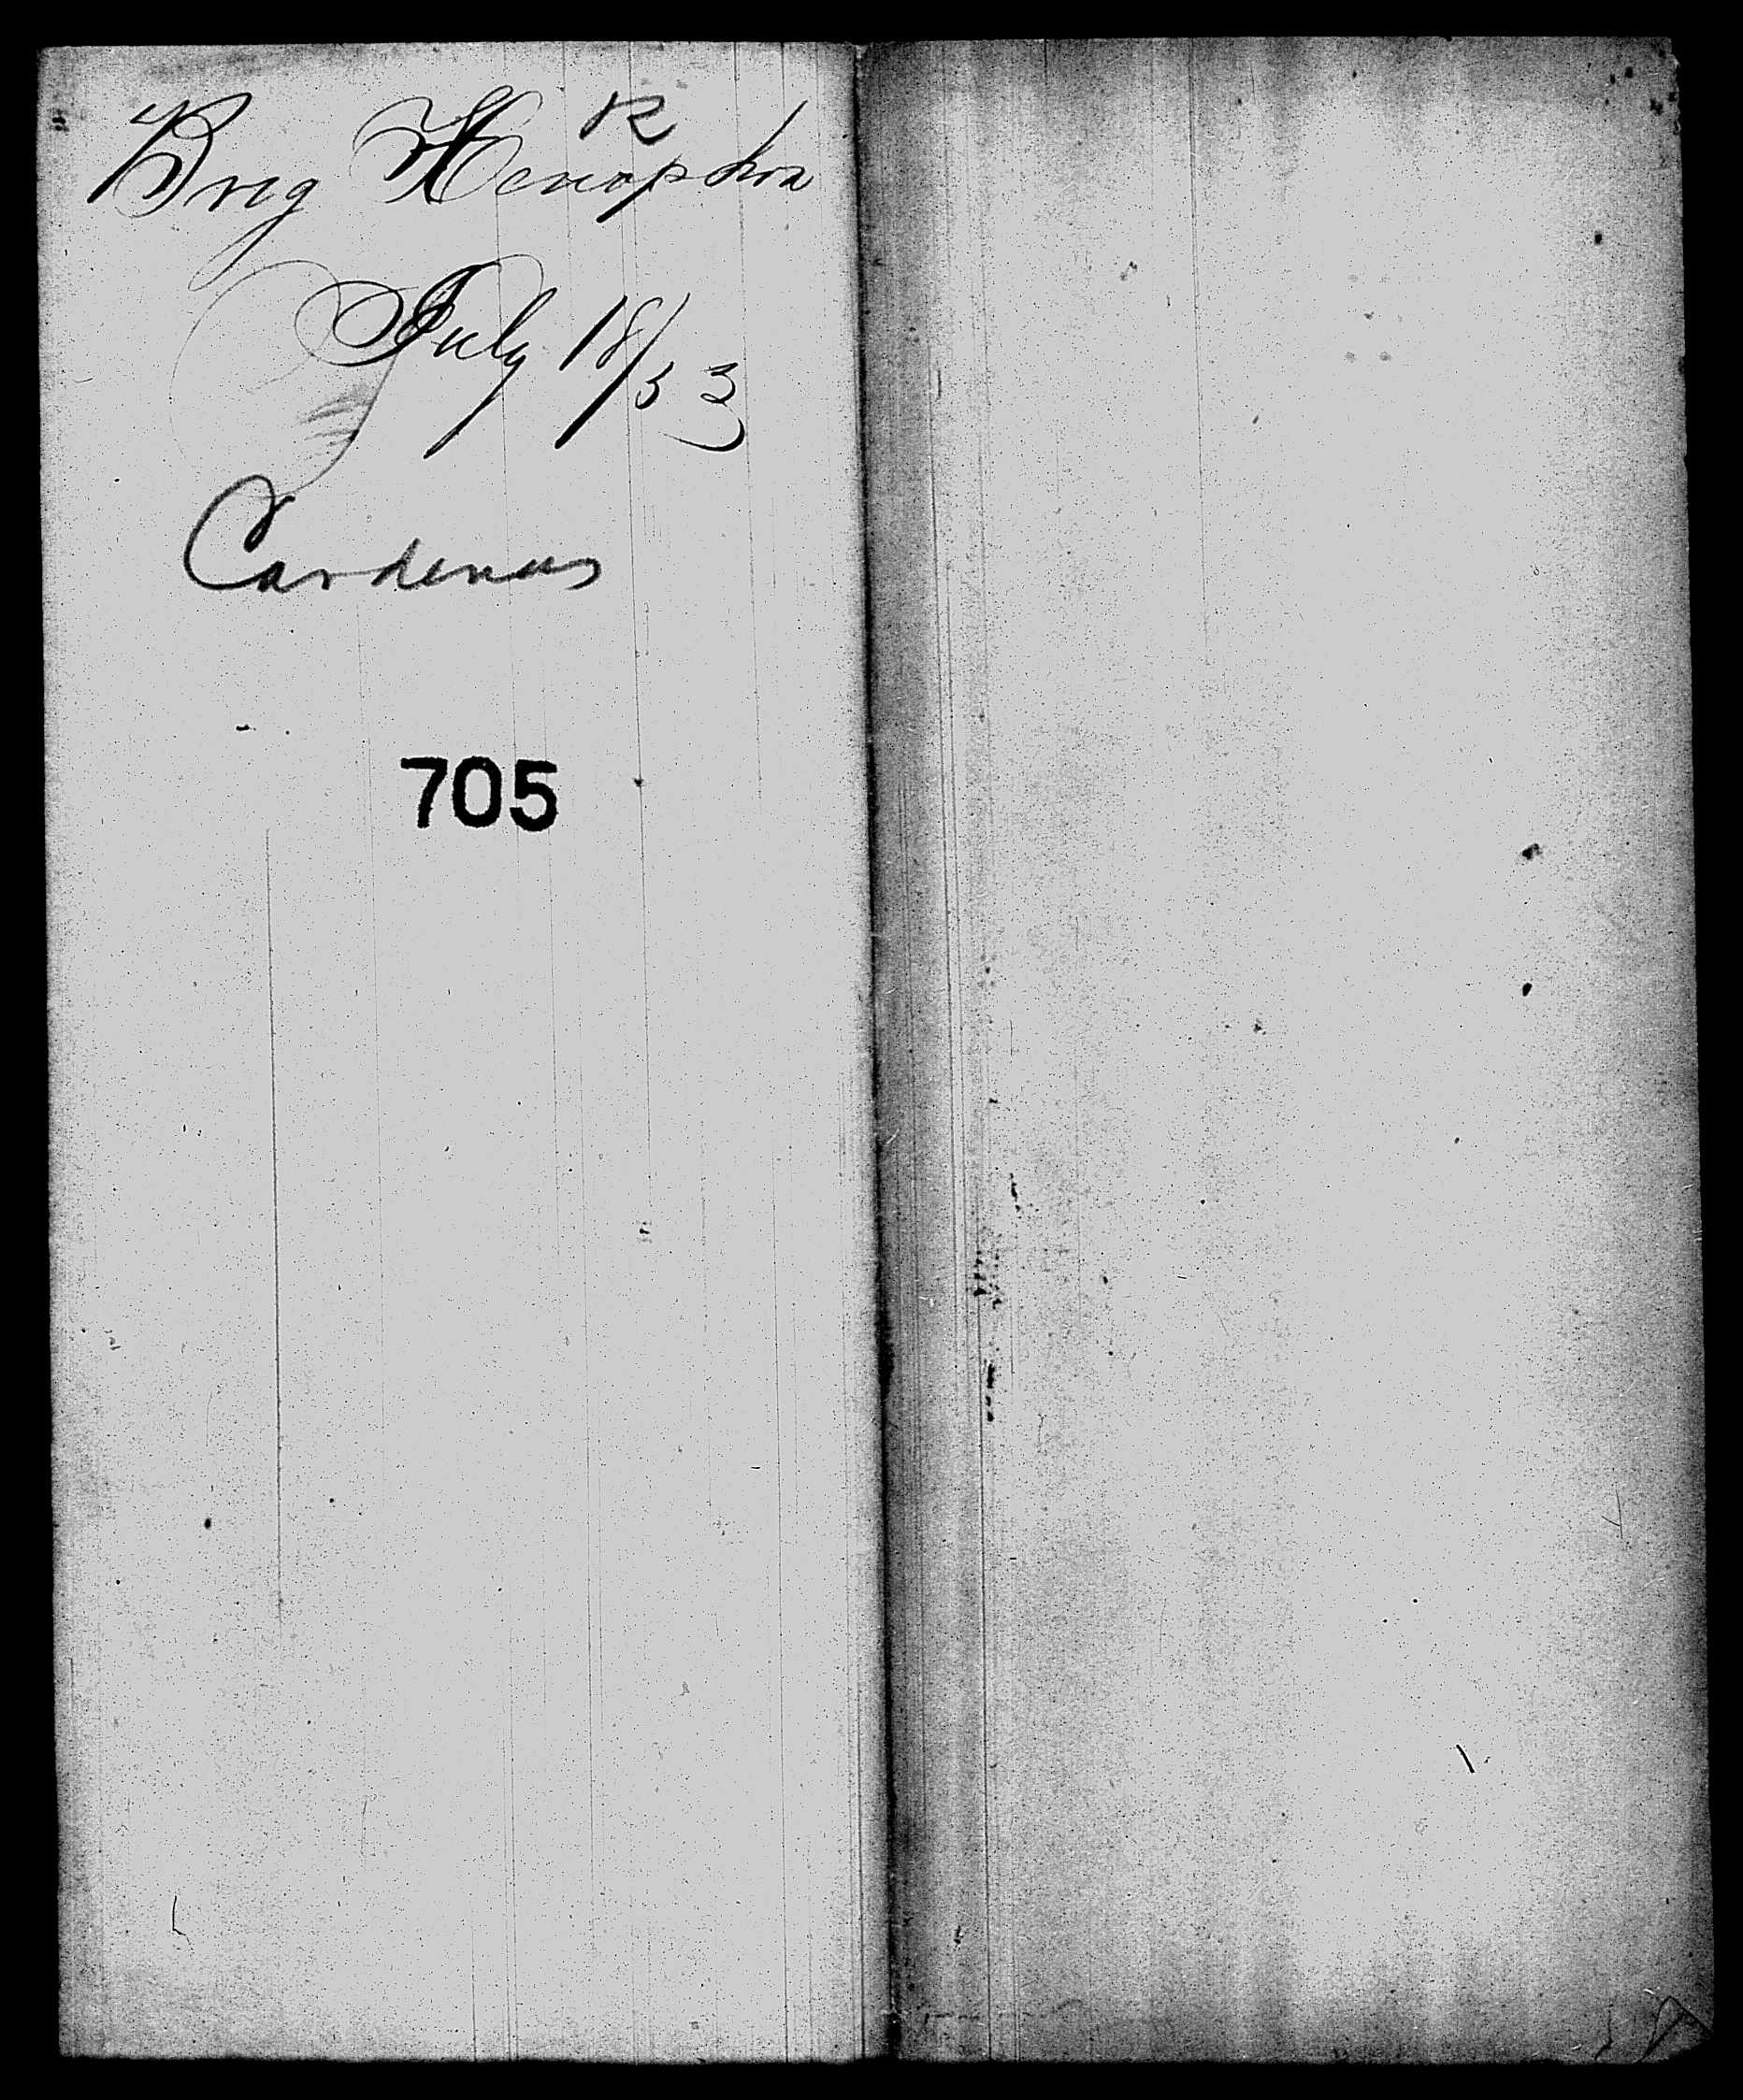 R
Brig Xenophon
July 18/53
Cardenas
705